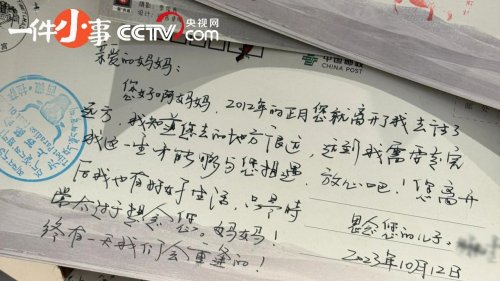 一件小事 CCTV.com 央视网
摄影：李
设计：
中国邮政
CHINA POST
亲爱的妈妈：
您好啊妈妈，2012年的正月您就离开了我去了
远方，我知道您去的地方很远，远到我需要走完
我这一生才能够与您相遇，放心吧！您离开
后我也有好好生活，只是时
常太过于想念您。妈妈！
终有一天我们会重逢的！
思念您的儿子。
2023年10月12日